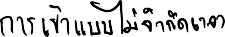 การเข้าแบบไม่จำกัดเวลา